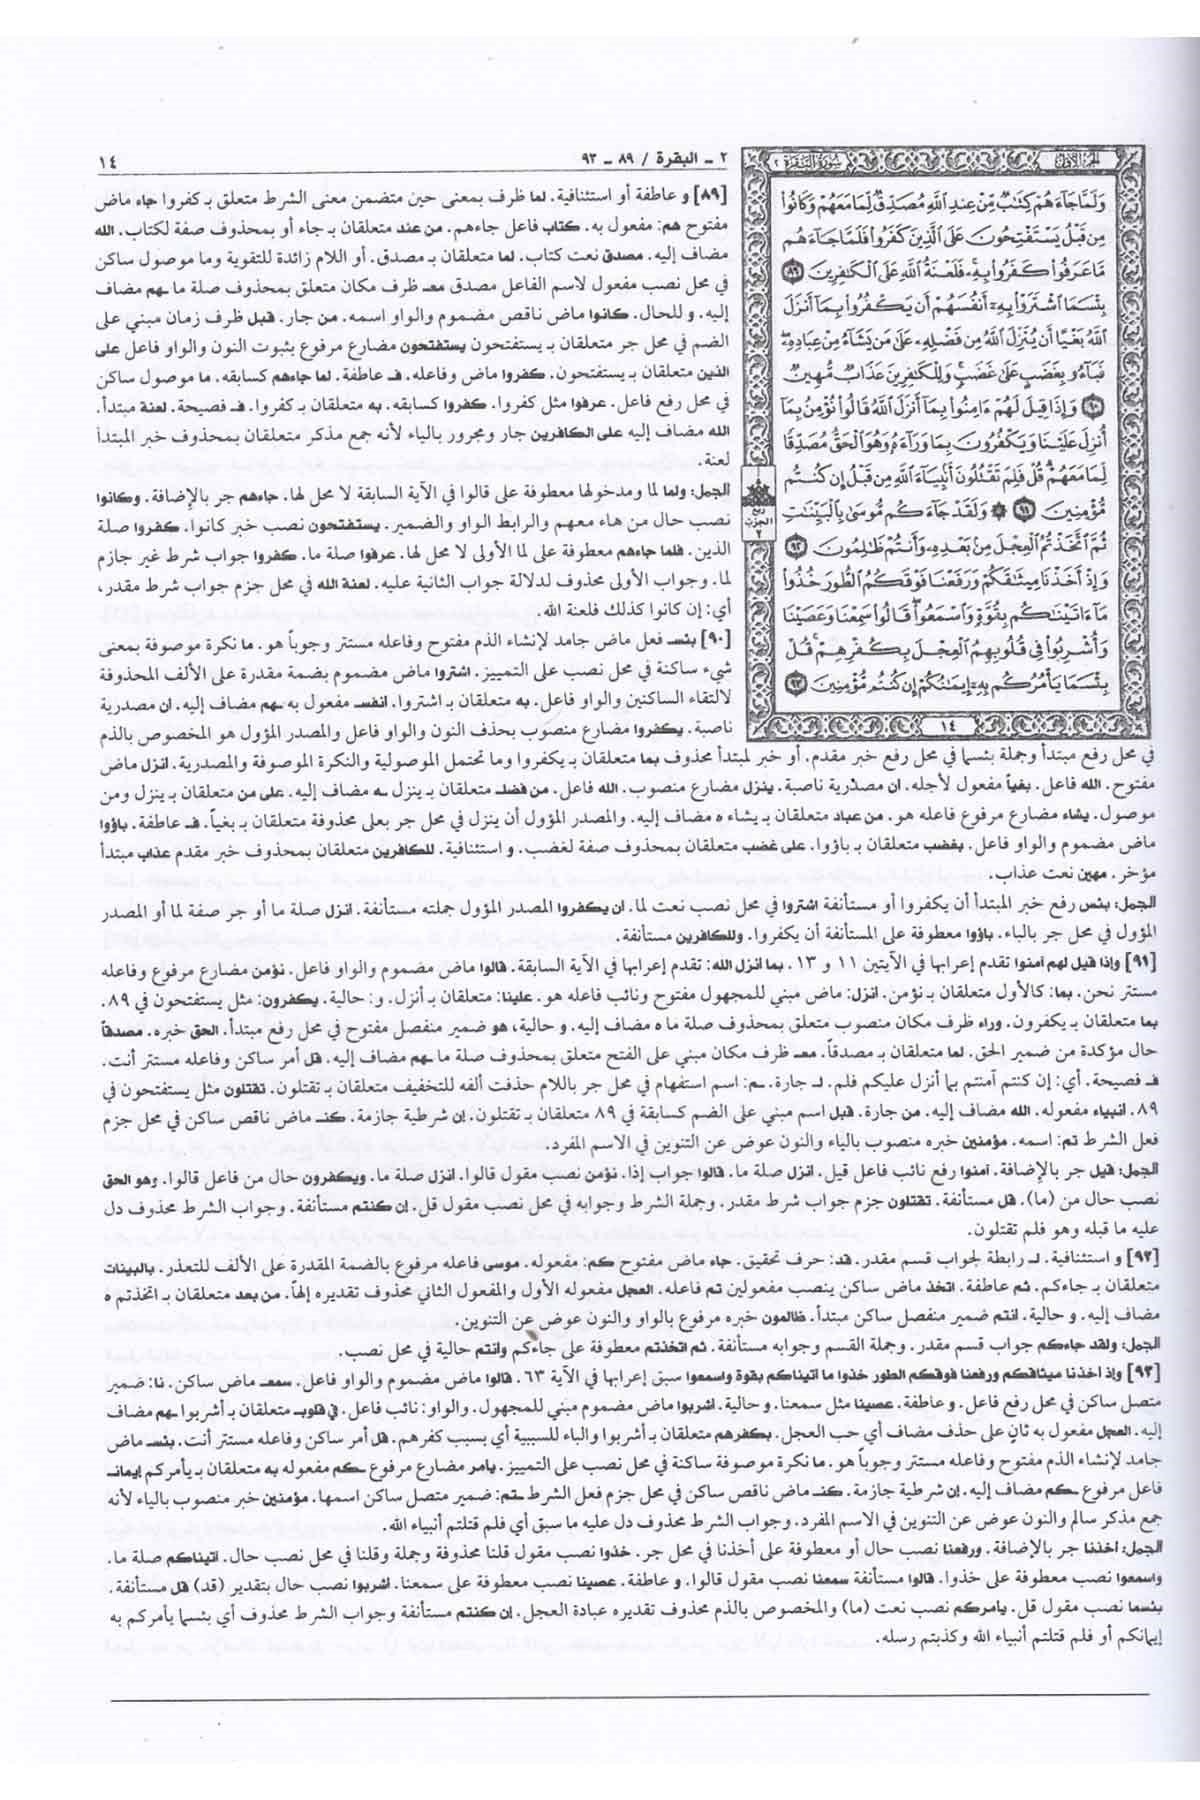 ٢ - البقرة / ٨٩ - ٩٣
١٤
الجزء الأول
سورة البقرة ٢
وَلَمَّا جَآءَهُمْ كِتَٰبٌ مِّنْ عِندِ ٱللَّهِ مُصَدِّقٌ لِّمَا مَعَهُمْ وَكَانُوا۟
مِن قَبْلُ يَسْتَفْتِحُونَ عَلَى ٱلَّذِينَ كَفَرُوا۟ فَلَمَّا جَآءَهُم
مَّا عَرَفُوا۟ كَفَرُوا۟ بِهِۦ فَلَعْنَةُ ٱللَّهِ عَلَى ٱلْكَٰفِرِينَ ٨٩
بِئْسَمَا ٱشْتَرَوْا۟ بِهِۦٓ أَنفُسَهُمْ أَن يَكْفُرُوا۟ بِمَآ أَنزَلَ
ٱللَّهُ بَغْيًا أَن يُنَزِّلَ ٱللَّهُ مِن فَضْلِهِۦ عَلَىٰ مَن يَشَآءُ مِنْ عِبَادِهِۦ
فَبَآءُو بِغَضَبٍ عَلَىٰ غَضَبٍ وَلِلْكَٰفِرِينَ عَذَابٌ مُّهِينٌ
٩٠ وَإِذَا قِيلَ لَهُمْ ءَامِنُوا۟ بِمَآ أَنزَلَ ٱللَّهُ قَالُوا۟ نُؤْمِنُ بِمَآ
أُنزِلَ عَلَيْنَا وَيَكْفُرُونَ بِمَا وَرَآءَهُۥ وَهُوَ ٱلْحَقُّ مُصَدِّقًا
لِّمَا مَعَهُمْ قُلْ فَلِمَ تَقْتُلُونَ أَنۢبِيَآءَ ٱللَّهِ مِن قَبْلُ إِن كُنتُم
مُّؤْمِنِينَ ٩١ ۞ وَلَقَدْ جَآءَكُم مُّوسَىٰ بِٱلْبَيِّنَٰتِ
ثُمَّ ٱتَّخَذْتُمُ ٱلْعِجْلَ مِنۢ بَعْدِهِۦ وَأَنتُمْ ظَٰلِمُونَ ٩٢
وَإِذْ أَخَذْنَا مِيثَٰقَكُمْ وَرَفَعْنَا فَوْقَكُمُ ٱلطُّورَ خُذُوا۟
مَآ ءَاتَيْنَٰكُم بِقُوَّةٍ وَٱسْمَعُوا۟ قَالُوا۟ سَمِعْنَا وَعَصَيْنَا
وَأُشْرِبُوا۟ فِى قُلُوبِهِمُ ٱلْعِجْلَ بِكُفْرِهِمْ قُلْ
بِئْسَمَا يَأْمُرُكُم بِهِۦٓ إِيمَٰنُكُمْ إِن كُنتُم مُّؤْمِنِينَ ٩٣
ربع
الحزب
٢
١٤
[٨٩] و عاطفة أو استئنافية. لما ظرف بمعنى حين متضمن معنى الشرط متعلق بـ كفروا جاء ماض
مفتوح هم: مفعول به. كتاب فاعل جاءهم. من عند متعلقان بـ جاء أو بمحذوف صفة لكتاب. الله
مضاف إليه. مصدق نعت كتاب. لما متعلقان بـ مصدق. أو اللام زائدة للتقوية وما موصول ساكن
في محل نصب مفعول لاسم الفاعل مصدق معـ ظرف مكان متعلق بمحذوف صلة ما ـهم مضاف
إليه. و للحال. كانوا ماض ناقص مضموم والواو اسمه. من جار. قبل ظرف زمان مبني على
الضم في محل جر متعلقان بـ يستفتحون يستفتحون مضارع مرفوع بثبوت النون والواو فاعل على
الذين متعلقان بـ يستفتحون. كفروا ماض وفاعله. فـ عاطفة. لما جاءهم كسابقه. ما موصول ساكن
في محل رفع فاعل. عرفوا مثل كفروا. كفروا كسابقه. به متعلقان بـ كفروا. فـ فصيحة. لعنة مبتدأ.
الله مضاف إليه على الكافرين جار ومجرور بالياء لأنه جمع مذكر متعلقان بمحذوف خبر المبتدأ
لعنة.
الجمل: ولما لما ومدخولها معطوفة على قالوا في الآية السابقة لا محل لها. جاءهم جر بالإضافة. وكانوا
نصب حال من هاء معهم والرابط الواو والضمير. يستفتحون نصب خبر كانوا. كفروا صلة
الذين. فلما جاءهم معطوفة على لما الأولى لا محل لها. عرفوا صلة ما. كفروا جواب شرط غير جازم
لما. وجواب الأولى محذوف لدلالة جواب الثانية عليه. لعنة الله في محل جزم جواب شرط مقدر،
أي: إن كانوا كذلك فلعنة الله.
[٩٠] بئسـ فعل ماض جامد لإنشاء الذم مفتوح وفاعله مستتر وجوباً هو. ما نكرة موصوفة بمعنى
شيء ساكنة في محل نصب على التمييز. اشتروا ماض مضموم بضمة مقدرة على الألف المحذوفة
لالتقاء الساكنين والواو فاعل. به متعلقان بـ اشتروا. انفسـ مفعول به ـهم مضاف إليه. ان مصدرية
ناصبة. يكفروا مضارع منصوب بحذف النون والواو فاعل والمصدر المؤول هو المخصوص بالذم
في محل رفع مبتدأ وجملة بئسما في محل رفع خبر مقدم. أو خبر لمبتدأ محذوف بما متعلقان بـ يكفروا وما تحتمل الموصولية والنكرة الموصوفة والمصدرية. انزل ماض
مفتوح. الله فاعل. بغياً مفعول لأجله. ان مصدرية ناصبة. ينزل مضارع منصوب. الله فاعل. من فضلـ متعلقان بـ ينزل ـه مضاف إليه. على من متعلقان بـ ينزل ومن
موصول. يشاء مضارع مرفوع فاعله هو. من عباد متعلقان بـ يشاء ه مضاف إليه. والمصدر المؤول أن ينزل في محل جر بعلى محذوفة متعلقان بـ بغياً. فـ عاطفة. باؤوا
ماض مضموم والواو فاعل. بغضب متعلقان بـ باؤوا. على غضب متعلقان بمحذوف صفة لغضب. و استئنافية. للكافرين متعلقان بمحذوف خبر مقدم عذاب مبتدأ
مؤخر. مهين نعت عذاب.
الجمل: بئس رفع خبر المبتدأ أن يكفروا أو مستأنفة اشتروا في محل نصب نعت لما. ان يكفروا المصدر المؤول جملته مستأنفة. انزل صلة ما أو جر صفة لما أو المصدر
المؤول في محل جر بالباء. باؤوا معطوفة على المستأنفة أن يكفروا. وللكافرين مستأنفة.
[٩١] وإذا قيل لهم آمنوا تقدم إعرابها في الآيتين ١١ و ١٣. بما انزل الله: تقدم إعرابها في الآية السابقة. قالوا ماض مضموم والواو فاعل. نؤمن مضارع مرفوع وفاعله
مستتر نحن. بما: كالأول متعلقان بـ نؤمن. انزل: ماض مبني للمجهول مفتوح ونائب فاعله هو. علينا: متعلقان بـ أنزل. و: حالية. يكفرون: مثل يستفتحون في ٨٩.
بما متعلقان بـ يكفرون. وراء ظرف مكان منصوب متعلق بمحذوف صلة ما ه مضاف إليه. و حالية، هو ضمير منفصل مفتوح في محل رفع مبتدأ. الحق خبره. مصدقاً
حال مؤكدة من ضمير الحق. لما متعلقان بـ مصدقاً. معـ ظرف مكان مبني على الفتح متعلق بمحذوف صلة ما ـهم مضاف إليه. قل أمر ساكن وفاعله مستتر أنت.
فـ فصيحة. أي: إن كنتم آمنتم بما أنزل عليكم فلم. لـ جارة. ـم: اسم استفهام في محل جر باللام حذفت ألفه للتخفيف متعلقان بـ تقتلون. تقتلون مثل يستفتحون في
٨٩. انبياء مفعوله. الله مضاف إليه. من جارة. قبل اسم مبني على الضم كسابقة في ٨٩ متعلقان بـ تقتلون. إن شرطية جازمة. كنـ ماض ناقص ساكن في محل جزم
فعل الشرط تم: اسمه. مؤمنين خبره منصوب بالياء والنون عوض عن التنوين في الاسم المفرد.
الجمل: قيل جر بالإضافة. آمنوا رفع نائب فاعل قيل. انزل صلة ما. قالوا جواب إذا. نؤمن نصب مقول قالوا. انزل صلة ما. ويكفرون حال من فاعل قالوا. وهو الحق
نصب حال من (ما). قل مستأنفة. تقتلون جزم جواب شرط مقدر. وجملة الشرط وجوابه في محل نصب مقول قل. إن كنتم مستأنفة. وجواب الشرط محذوف دل
عليه ما قبله وهو فلم تقتلون.
[٩٢] و استئنافية. لـ رابطة لجواب قسم مقدر. قد: حرف تحقيق. جاء ماض مفتوح كم: مفعوله. موسى فاعله مرفوع بالضمة المقدرة على الألف للتعذر. بالبينات
متعلقان بـ جاءكم. ثم عاطفة. اتخذ ماض ساكن ينصب مفعولين تم فاعله. العجل مفعوله الأول والمفعول الثاني محذوف تقديره إلهاً. من بعد متعلقان بـ اتخذتم ه
مضاف إليه. و حالية. انتم ضمير منفصل ساكن مبتدأ. ظالمون خبره مرفوع بالواو والنون عوض عن التنوين.
الجمل: ولقد جاءكم جواب قسم مقدر. وجملة القسم وجوابه مستأنفة. ثم اتخذتم معطوفة على جاءكم وانتم حالية في محل نصب.
[٩٣] وإذ اخذنا ميثاقكم ورفعنا فوقكم الطور خذوا ما اتيناكم بقوة واسمعوا سبق إعرابها في الآية ٦٣. قالوا ماض مضموم والواو فاعل. سمعـ ماض ساكن. نا: ضمير
متصل ساكن في محل رفع فاعل. و عاطفة. عصينا مثل سمعنا. و حالية. اشربوا ماض مضموم مبني للمجهول. والواو: نائب فاعل. في قلوبـ متعلقان بـ أشربوا ـهم مضاف
إليه. العجل مفعول به ثانٍ على حذف مضاف أي حب العجل. بكفرهم متعلقان بـ أشربوا والباء للسببية أي بسبب كفرهم. قل أمر ساكن وفاعله مستتر أنت. بئسـ ماض
جامد لإنشاء الذم مفتوح وفاعله مستتر وجوباً هو. ما نكرة موصوفة ساكنة في محل نصب على التمييز. يامر مضارع مرفوع ـكم مفعوله به متعلقان بـ يأمركم إيمانـ
فاعل مرفوع ـكم مضاف إليه. إن شرطية جازمة. كنـ ماض ناقص ساكن في محل جزم فعل الشرط ـتم: ضمير متصل ساكن اسمها. مؤمنين خبر منصوب بالياء لأنه
جمع مذكر سالم والنون عوض عن التنوين في الاسم المفرد. وجواب الشرط محذوف دل عليه ما سبق أي فلم قتلتم أنبياء الله.
الجمل: اخذنا جر بالإضافة. ورفعنا نصب حال أو معطوفة على أخذنا في محل جر. خذوا نصب مقول قلنا محذوفة وجملة وقلنا في محل نصب حال. اتيناكم صلة ما.
واسمعوا نصب معطوفة على خذوا. قالوا مستأنفة سمعنا نصب مقول قالوا. و عاطفة. عصينا نصب معطوفة على سمعنا. اشربوا نصب حال بتقدير (قد) قل مستأنفة.
بئسما نصب مقول قل. يامركم نصب نعت (ما) والمخصوص بالذم محذوف تقديره عبادة العجل. إن كنتم مستأنفة وجواب الشرط محذوف أي بئسما يأمركم به
إيمانكم أو فلم قتلتم أنبياء الله وكذبتم رسله.